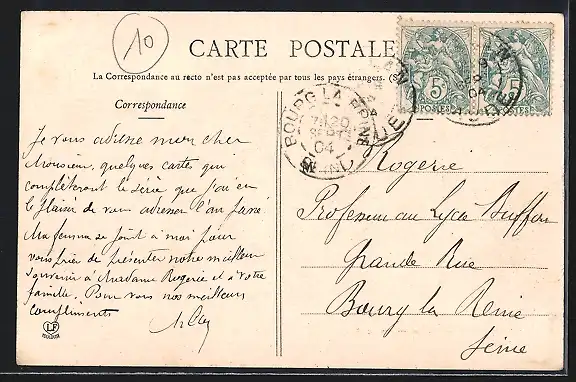 10
CARTE POSTALE
La Correspondance au recto n'est pas acceptée par tous les pays étrangers. (S
Correspondance
Je vous adresse mon cher
Monsieur, quelques cartes qui
complèteront la série que j'ai eu
le plaisir de vous adresser l'an passé.
Ma femme se joint à moi pour
vous prier de présenter notre meilleur
souvenir à Madame Rogerie et à votre
famille. Pour vous nos meilleurs
compliments
LF
5c 5c
POSTES POSTES
BOURG LA REINE
7h20
SEPT
04
SEINE
Rogerie
Professeur au Lycée Buffon
Grande Rue
Bourg la Reine
Seine